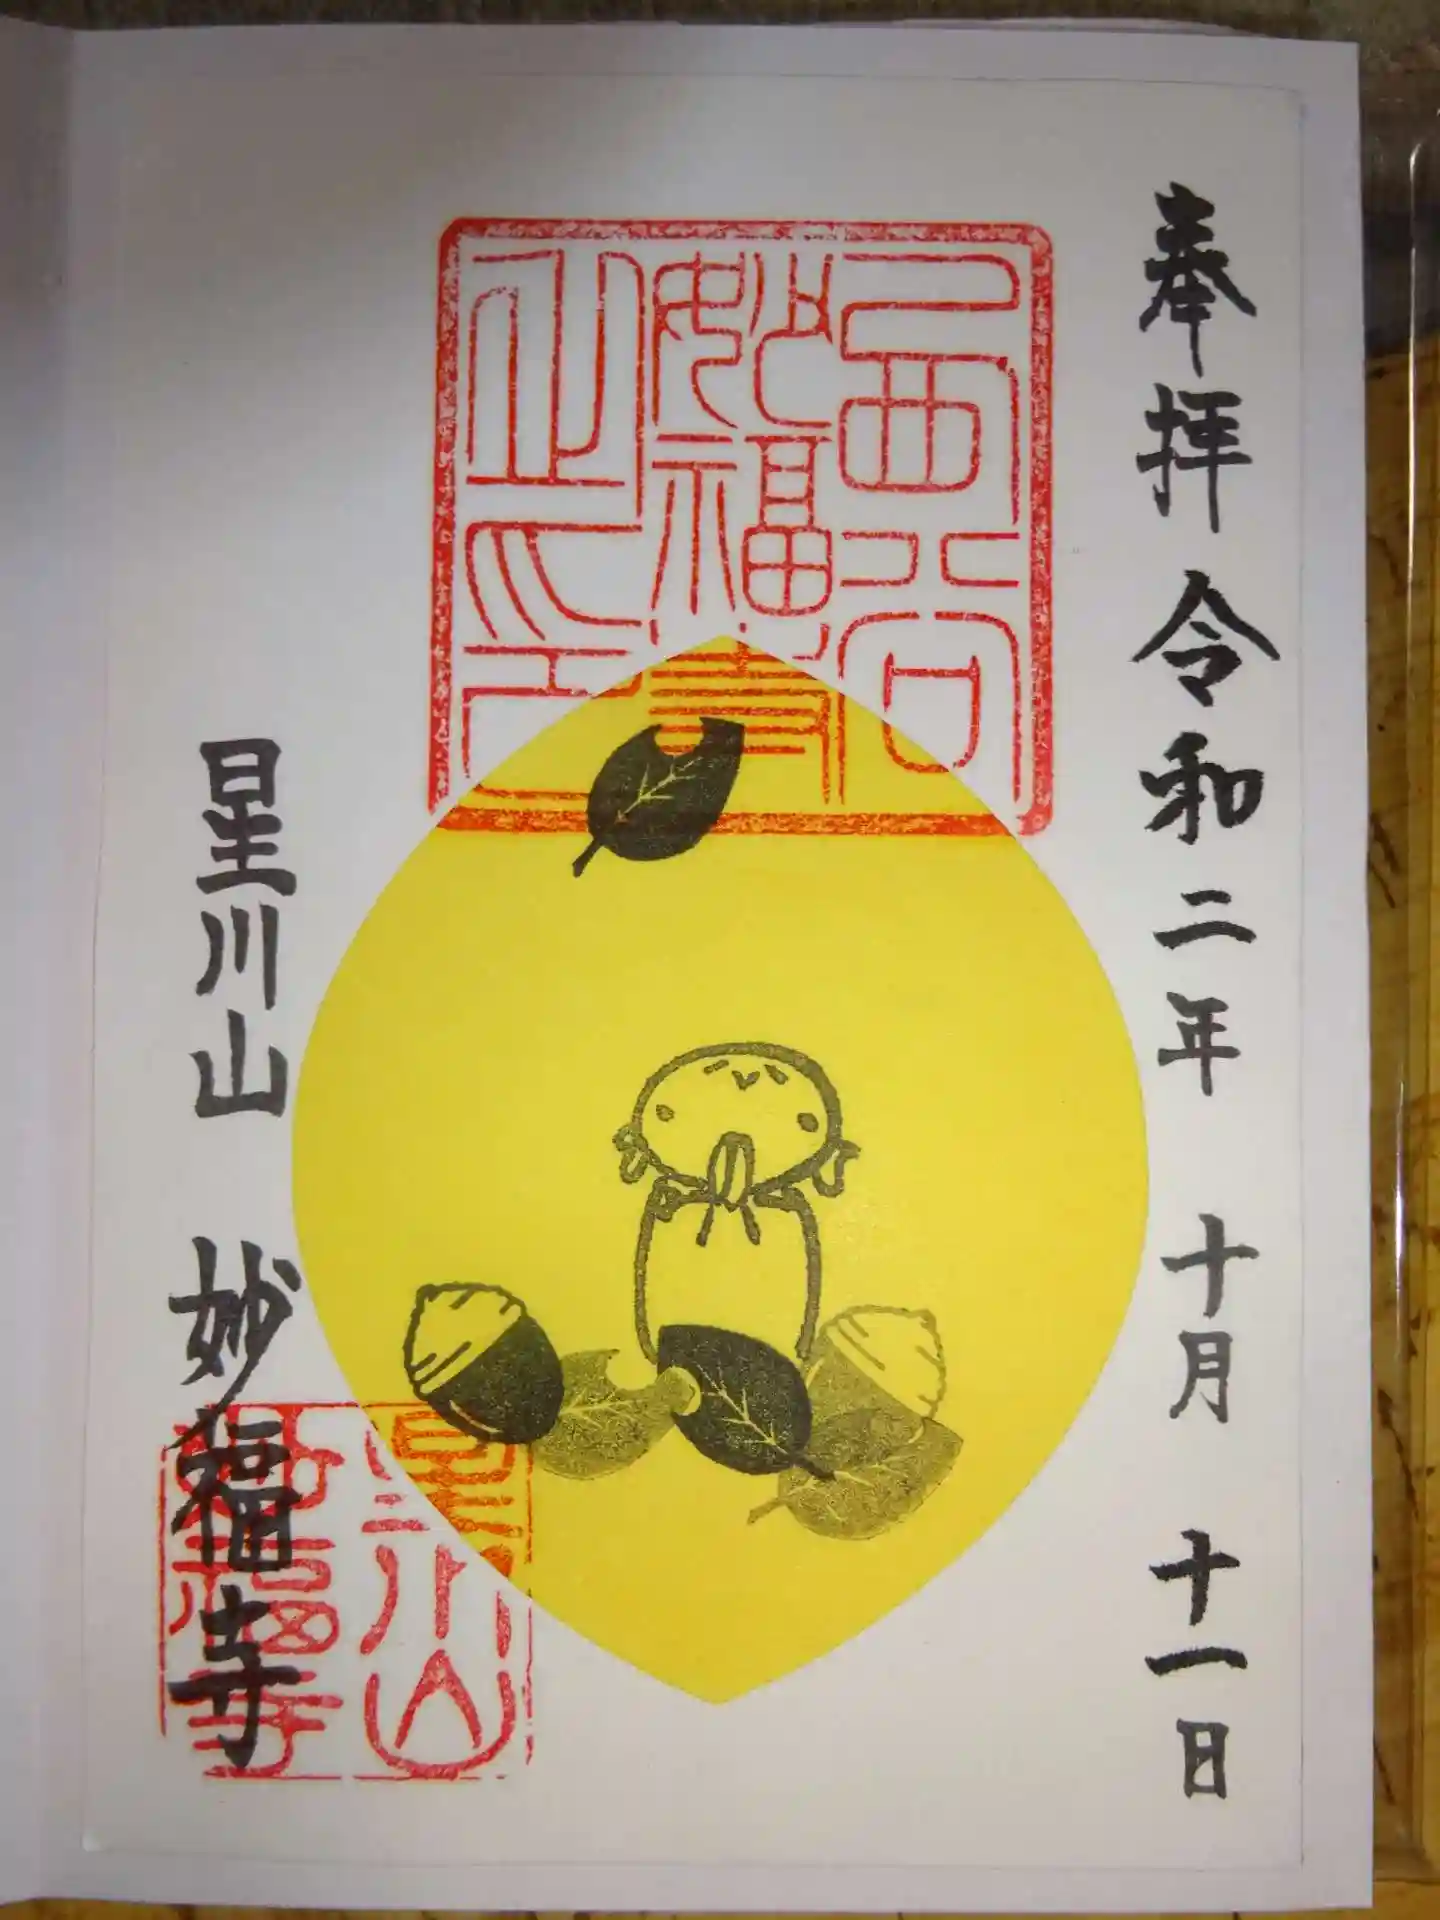 奉拝 令和二年 十月 十一日
西谷
妙福寺
正印
星川山 妙福寺
星川山
妙福寺